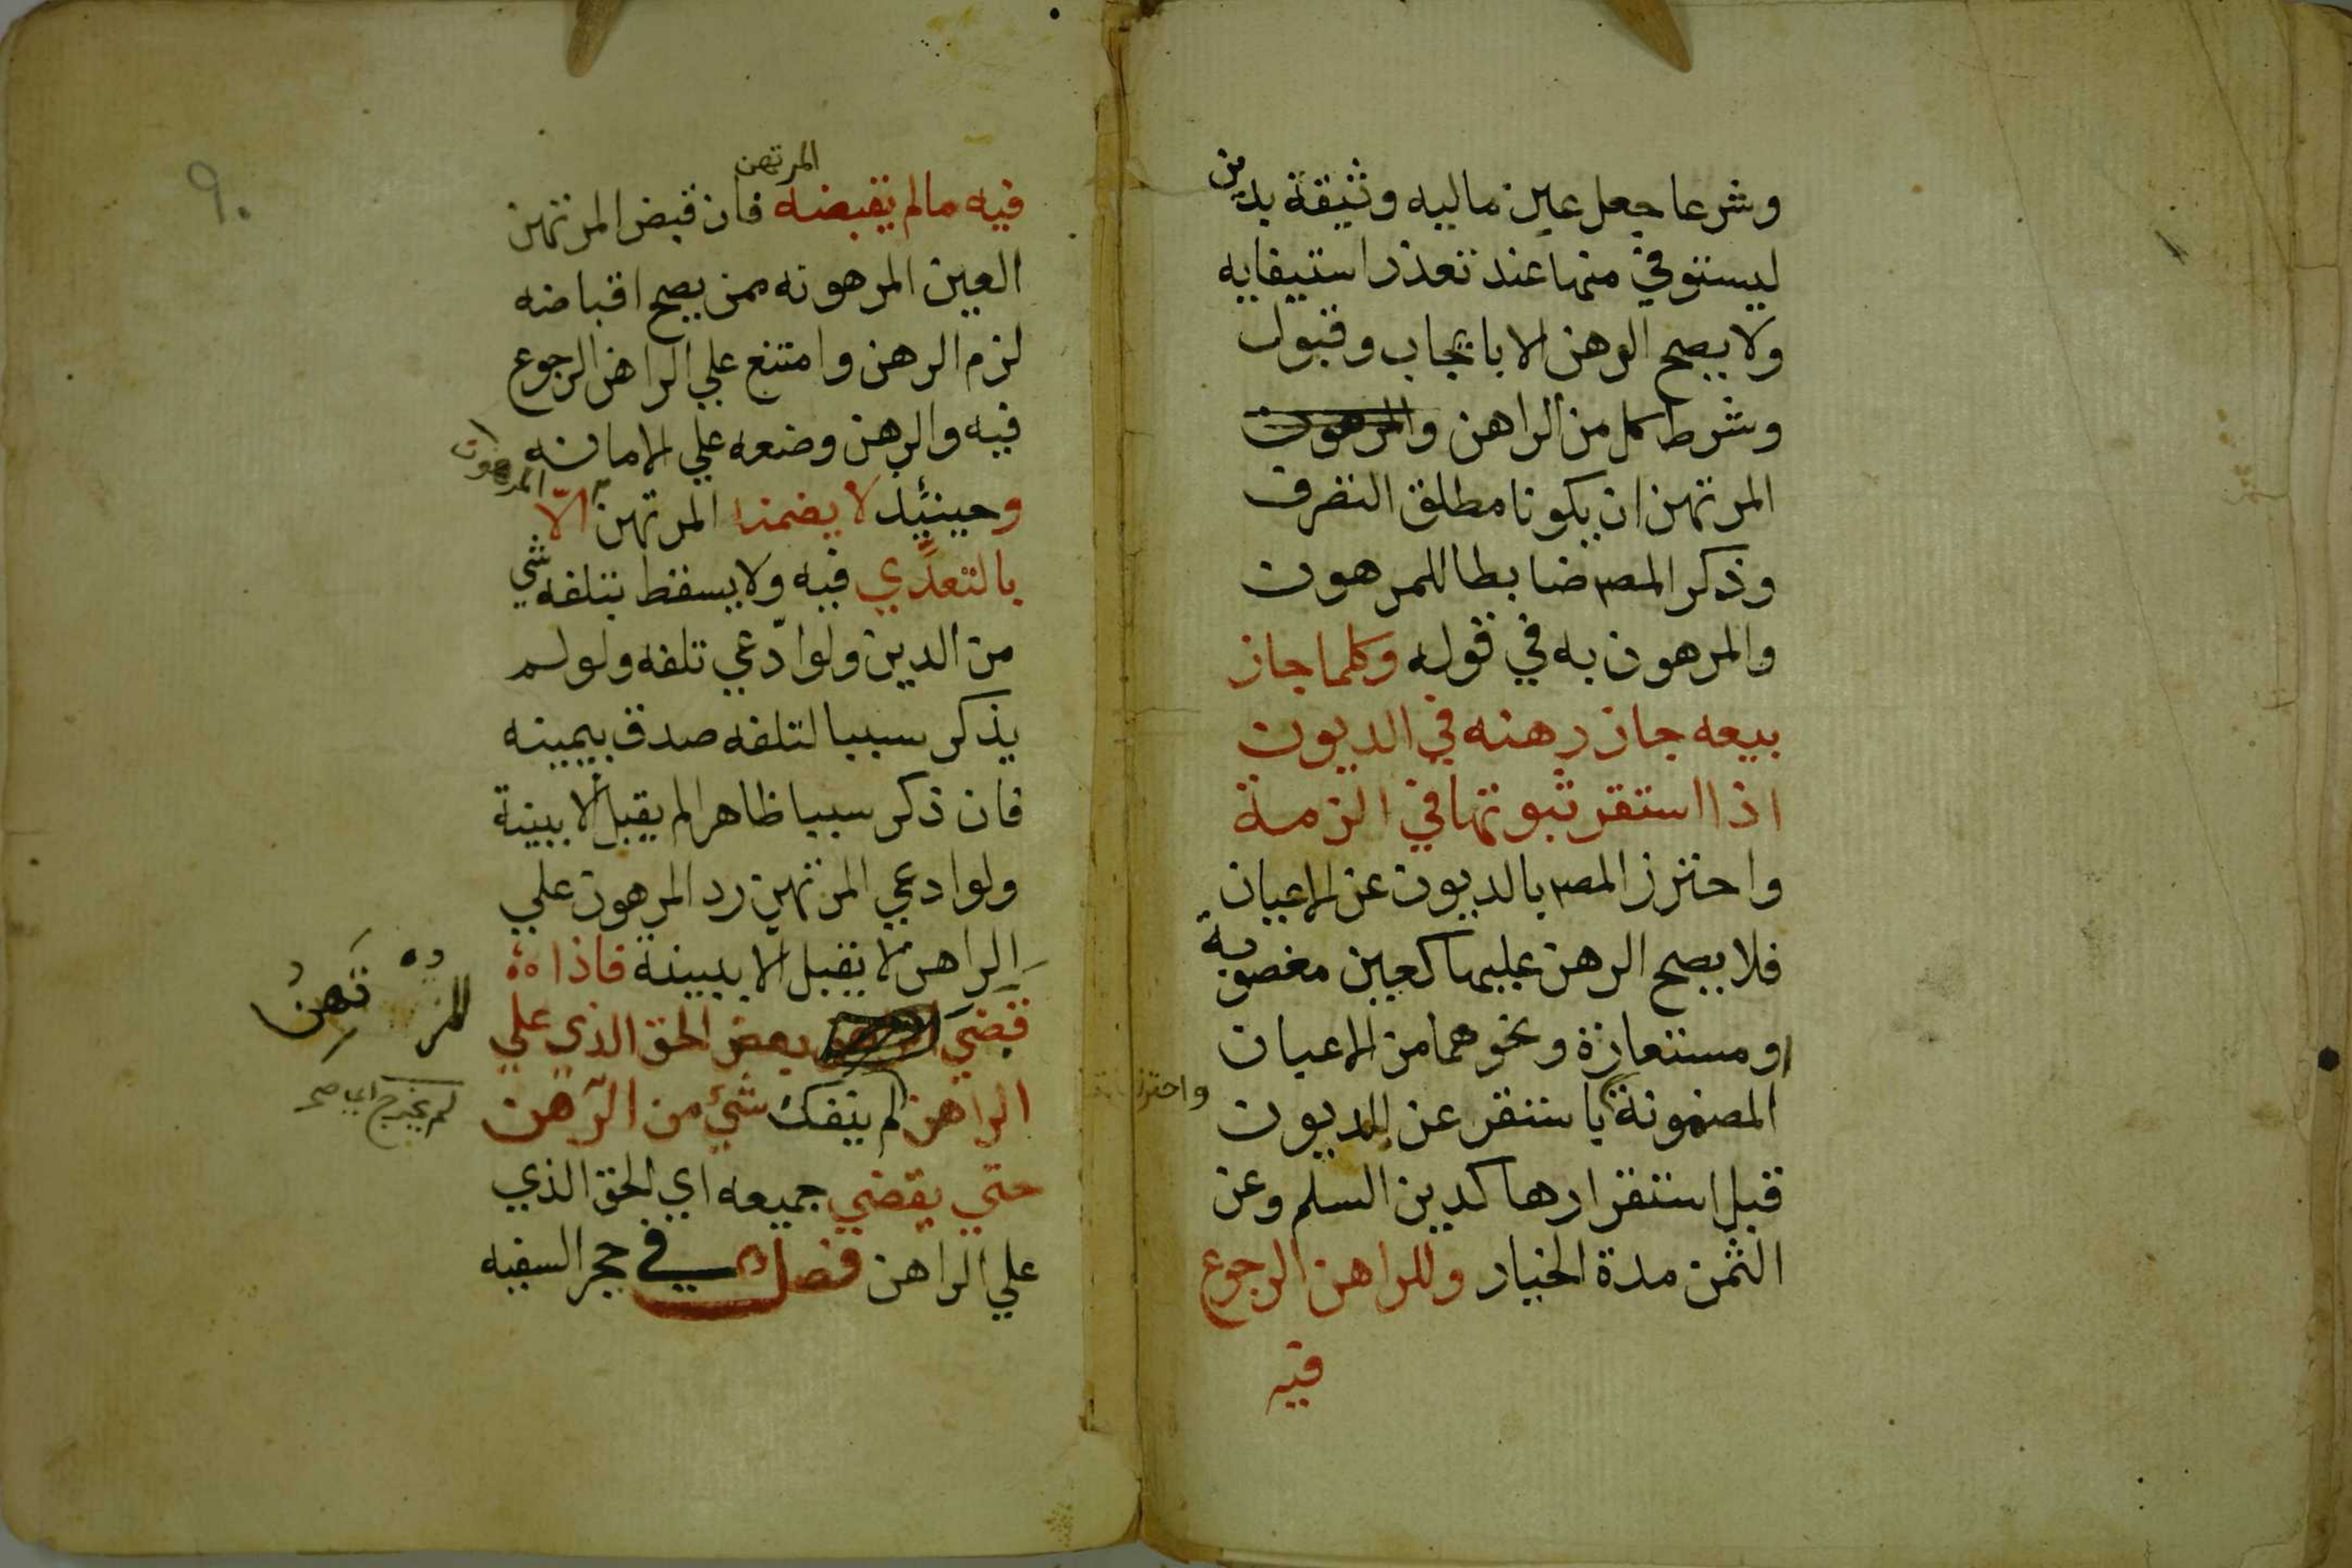 وشرعا جعل عين ماليه وثيقة بدين
ليستوفي منها عند تعذر استيفايه
ولا يصح الرهن الا بايجاب وقبول
وشرط كل من الراهن والمرهون
المرتهن ان يكونا مطلق التصرف
وذكر المصـ ضابطا للمرهون
والمرهون به في قوله وكلما جاز
بيعه جاز رهنه في الديون
اذا استقر ثبوتها في الزمة
واحترز المصـ بالديون عن الاعيان
فلا يصح الرهن عليها كعين مغصوبة
ومستعارة ونحوهما من الاعيان
المضمونة باستقر عن الديون
واحترز
قبل استقرارها كدين السلم وعن
الثمن مدة الخيار وللراهن الرجوع
فيه
٩٠
المرتهن
فيه مالم يقبضه فان قبض المرتهن
العين المرهونه ممن يصح اقباضه
لزم الرهن وامتنع علي الراهن الرجوع
فيه والرهن وضعه علي الامانه
وحينئيذ لا يضمنه المرتهن الّا
المرهون
بالتعدّي فيه ولا يسقط بتلفه شي
من الدين ولو ادّعي تلفه ولو لم
يذكر سببا لتلفه صدق بيمينه
فان ذكر سببا ظاهرا لم يقبل الا ببينة
ولو ادعي المرتهين رد المرهون علي
الراهن لا يقبل الا ببينة فاذا
قضي بعض الحق الذي علي
المرتهن
الراهن لم ينفك شئ من الرّهن
لم يخرج اي صح
حتي يقضي جميعه اي الحق الذي
علي الراهن فصل في حجر السفيه